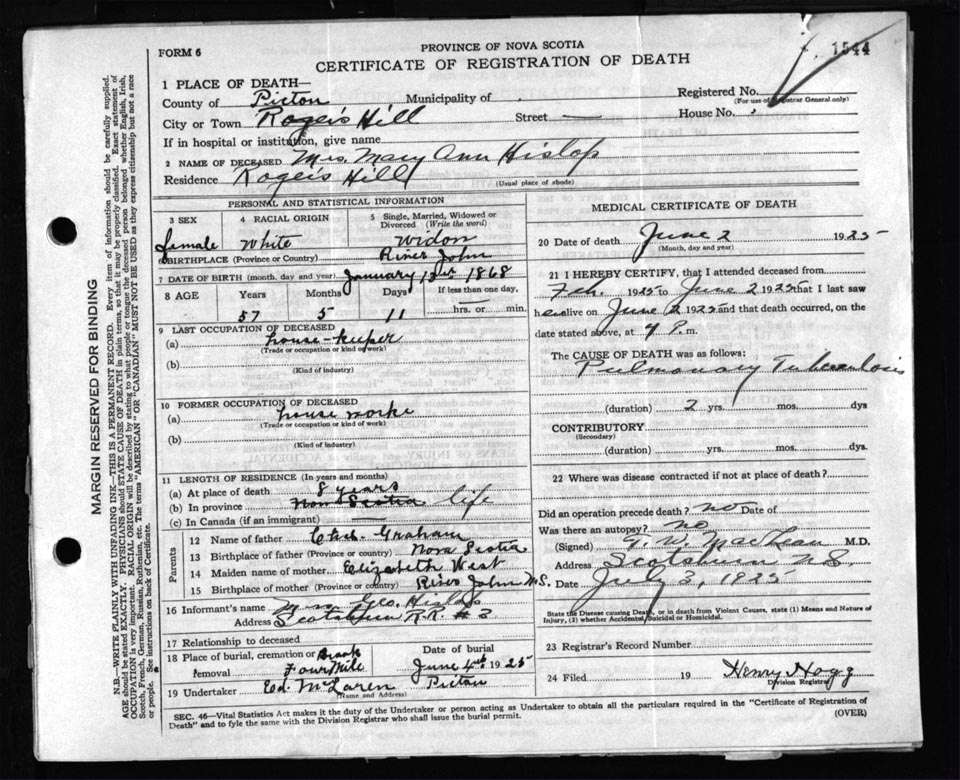 FORM 6
PROVINCE OF NOVA SCOTIA
1544
CERTIFICATE OF REGISTRATION OF DEATH
1 PLACE OF DEATH—
County of Pictou Municipality of
Registered No.
(For use of Registrar General only)
City or Town Roger's Hill Street House No.
If in hospital or institution, give name
2 NAME OF DECEASED Mrs. Mary Ann Hislop
Residence Roger's Hill
(Usual place of abode)
PERSONAL AND STATISTICAL INFORMATION
3 SEX 4 RACIAL ORIGIN 5 Single, Married, Widowed or Divorced (Write the word)
female White Widow
BIRTHPLACE (Province or Country) River John
7 DATE OF BIRTH (month, day and year) January 1868
8 AGE Years Months Days If less than one day,
57 5 11 hrs. or min.
9 LAST OCCUPATION OF DECEASED
(a) house-keeper
(Trade or occupation or kind of work)
(b)
(Kind of industry)
10 FORMER OCCUPATION OF DECEASED
(a) house worke
(Trade or occupation or kind of work)
(b)
(Kind of industry)
11 LENGTH OF RESIDENCE (In years and months)
(a) At place of death 8 years
(b) In province Nova Scotia life
(c) In Canada (if an immigrant)
Parents
12 Name of father Chas. Graham
13 Birthplace of father (Province or country) Nova Scotia
14 Maiden name of mother Elizabeth West
15 Birthplace of mother (Province or country) River John N.S.
16 Informant's name Geo. Hislop
Address Scotsburn R.R. # 3
17 Relationship to deceased
18 Place of burial, cremation or removal Four Mile Brook
Date of burial
June 4th 1925
19 Undertaker Ed. McLaren Pictou
(Name and Address)
MEDICAL CERTIFICATE OF DEATH
20 Date of death June 2 1925
(Month, day and year)
21 I HEREBY CERTIFY, that I attended deceased from
Feb. 1925 to June 2 1925 that I last saw
her alive on June 2 1925 and that death occurred, on the
date stated above, at 4 P.m.
The CAUSE OF DEATH was as follows:
Pulmonary Tuberculosis
(duration) 2 yrs. mos. dys
CONTRIBUTORY
(Secondary)
(duration) yrs. mos. dys.
22 Where was disease contracted if not at place of death?
Did an operation precede death? no Date of
Was there an autopsy? no
(Signed) G. W. MacLean M.D.
Address Scotsburn N.S.
Date July 3, 1925
State the Disease causing Death, or in death from Violent Causes, state (1) Means and Nature of
Injury, (2) whether Accidental, Suicidal or Homicidal.
23 Registrar's Record Number
24 Filed 19 Henry Hogg
Division Registrar
SEC. 46—Vital Statistics Act makes it the duty of the Undertaker or person acting as Undertaker to obtain all the particulars required in the "Certificate of Registration of
Death" and to fyle the same with the Division Registrar who shall issue the burial permit.
(OVER)
MARGIN RESERVED FOR BINDING
N.B.—WRITE PLAINLY WITH UNFADING INK—THIS IS A PERMANENT RECORD. Every item of information should be carefully supplied.
AGE should be stated EXACTLY. PHYSICIANS should STATE CAUSE OF DEATH in plain terms, so that it may be properly classified. Exact statement of
OCCUPATION is very important. RACIAL ORIGIN will be described by stating to what people or tongue the deceased person belonged whether English, Irish,
Scotch, French, German, Russian, Ruthenian, etc. The terms "AMERICAN" or "CANADIAN" MUST NOT BE USED as they express citizenship but not a race
or people. See instructions on back of Certificate.